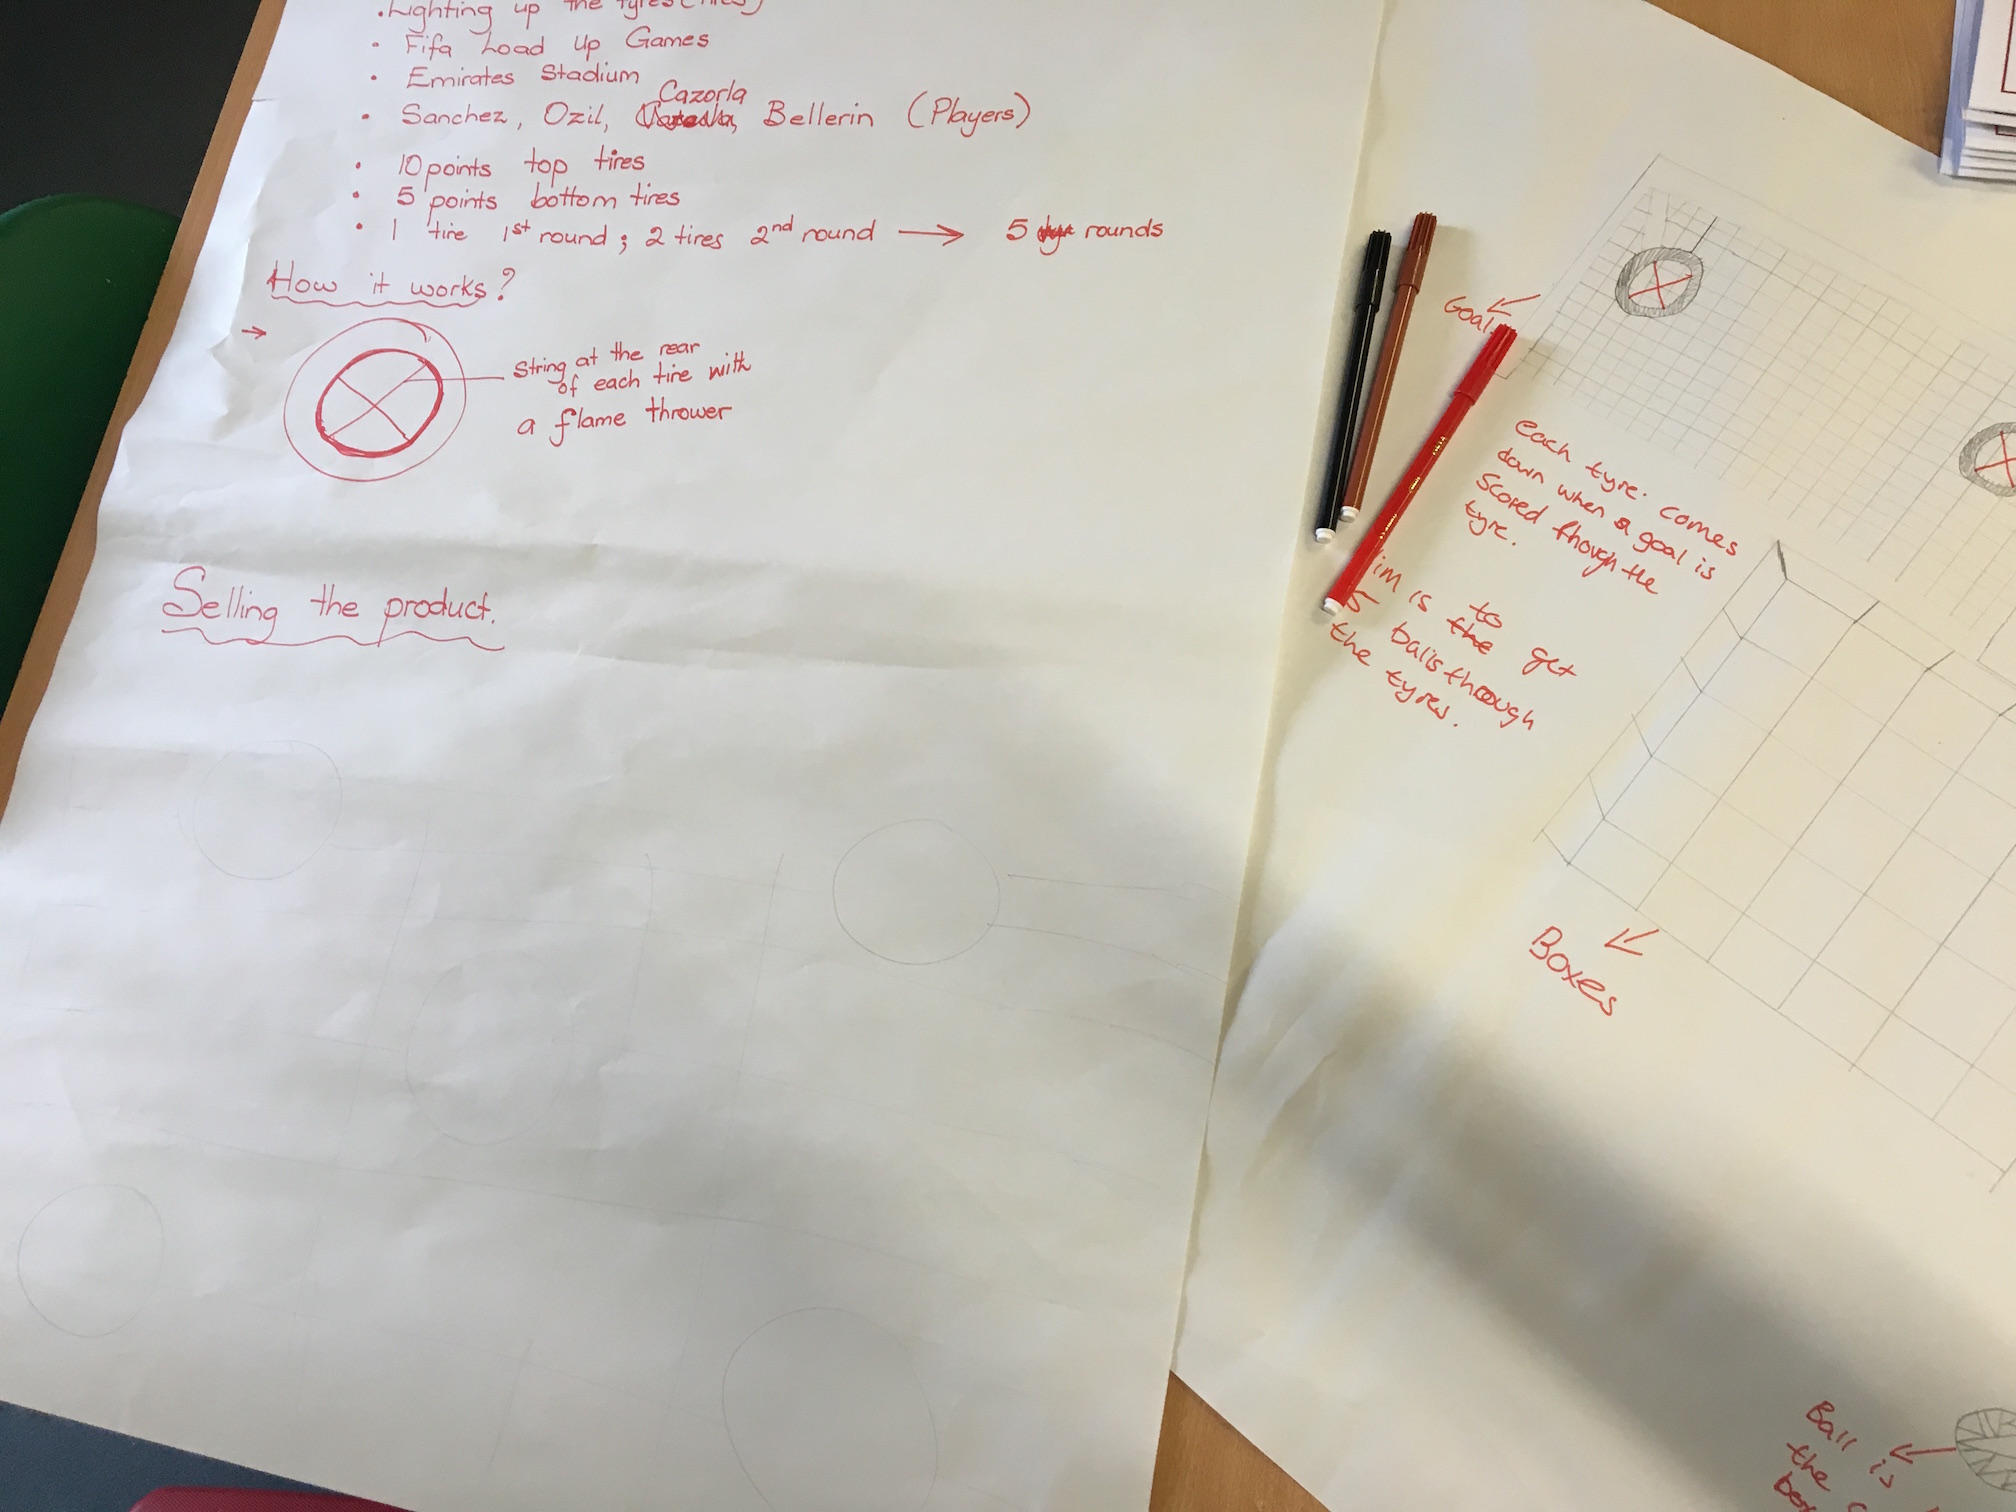 • Lighting up the tyres
• Fifa Load Up Games
• Emirates Stadium
Cazorla
• Sanchez, Ozil, Bellerin (Players)
• 10 points top tires
• 5 points bottom tires
• 1 tire 1st round ; 2 tires 2nd round → 5 rounds
How it works?
→
String at the rear
of each tire with
a flame thrower
Selling the product.
Goal
each tyre. comes
down when a goal is
scored though the
tyre.
im is to
the get
5 balls through
the tyres.
Boxes
Ball is
the